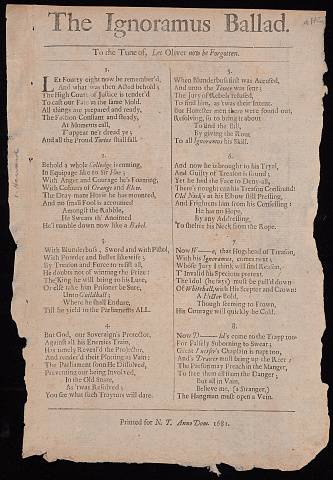 The Ignoramus Ballad.
To the Tune of, Let Oliver now be Forgotten.
1.
LEt Fourty eight now be remember'd,
And what was then Acted behold;
The High Court of Justice is tender'd
To cast our Fate in the same Mold.
All things are prepared and ready,
The Faction Constant and steady,
At Moments call,
T'appear ne're dread ye;
And all the Proud Tories shall fall.
2.
Behold a whole Colledge is coming,
In Equipage like to Sir
With Anger and Courage he's Foaming,
With Colours of Orange and Blew.
The Dray-mans Horse he has mounted,
And no small Fool is accounted
Amongst the Rabble,
He Swears th' Anointed
He'l tumble down now like a Babel.
3.
With Blunderbuss, Sword and with Pistol,
With Powder and Bullet likewise;
By Treason and Force he will all,
He doubts not of winning the Prize:
The King he will bring to his Lure,
Or else take him Prisoner be sure,
Unto Guildhall;
Where he shall Endure,
Till he yield to the Parliaments ALL.
4.
But God, our Soveraign's Protector,
Against all his Enemies Train,
Has timely Reveal'd the Projector,
And render'd their Plotting as Vain:
The Parliament soon He Dissolved,
Preventing our being Involved,
In the Old Snare,
As 'twas Resolved;
You see what such Traytors will dare.
5.
When Blunderbuss first was Accused,
And unto the Tower was sent;
The Jury of Rebels refused,
To find him, as 'twas their Intent.
But Honester men there were found out,
Resolving, to bring it about
To find the Bill,
By giving the Rout
To all Ignoramus his Skill.
6.
And now he is brought to his Tryal,
And Guilty of Treason is found;
Yet he had the Face to Deny-all,
There's nought can his Treason Confound:
Old Nick's at his Elbow still Pressing,
And Frightens him from his Confessing;
He has no Hope,
By any Addressing,
To shift his Neck from the Rope.
7.
Now W that Hogshead of Treason,
With his Ignoramus, comes next;
Whose Jury I think will find Reason,
T' Invalid his Specious pretext.
The Idol (he says) must be pull'd down
Of Whitehall, with His Scepter and Crown:
A Hector Bold,
Though seeming to Frown,
His Courage will quickly be Cold.
8.
Now D he's come to the Trapp too
For Falsly Suborning to Swear;
Great Lucifer's Chaplain is rapt too,
And's Tearer must bring up the Rear:
The Parson may Preach in the Manger,
To free them all from the Danger;
But all in Vain.
Believe me, (a Stranger,)
The Hangman must open a Vein.
Printed for N. T. Anno Dom. 1681.